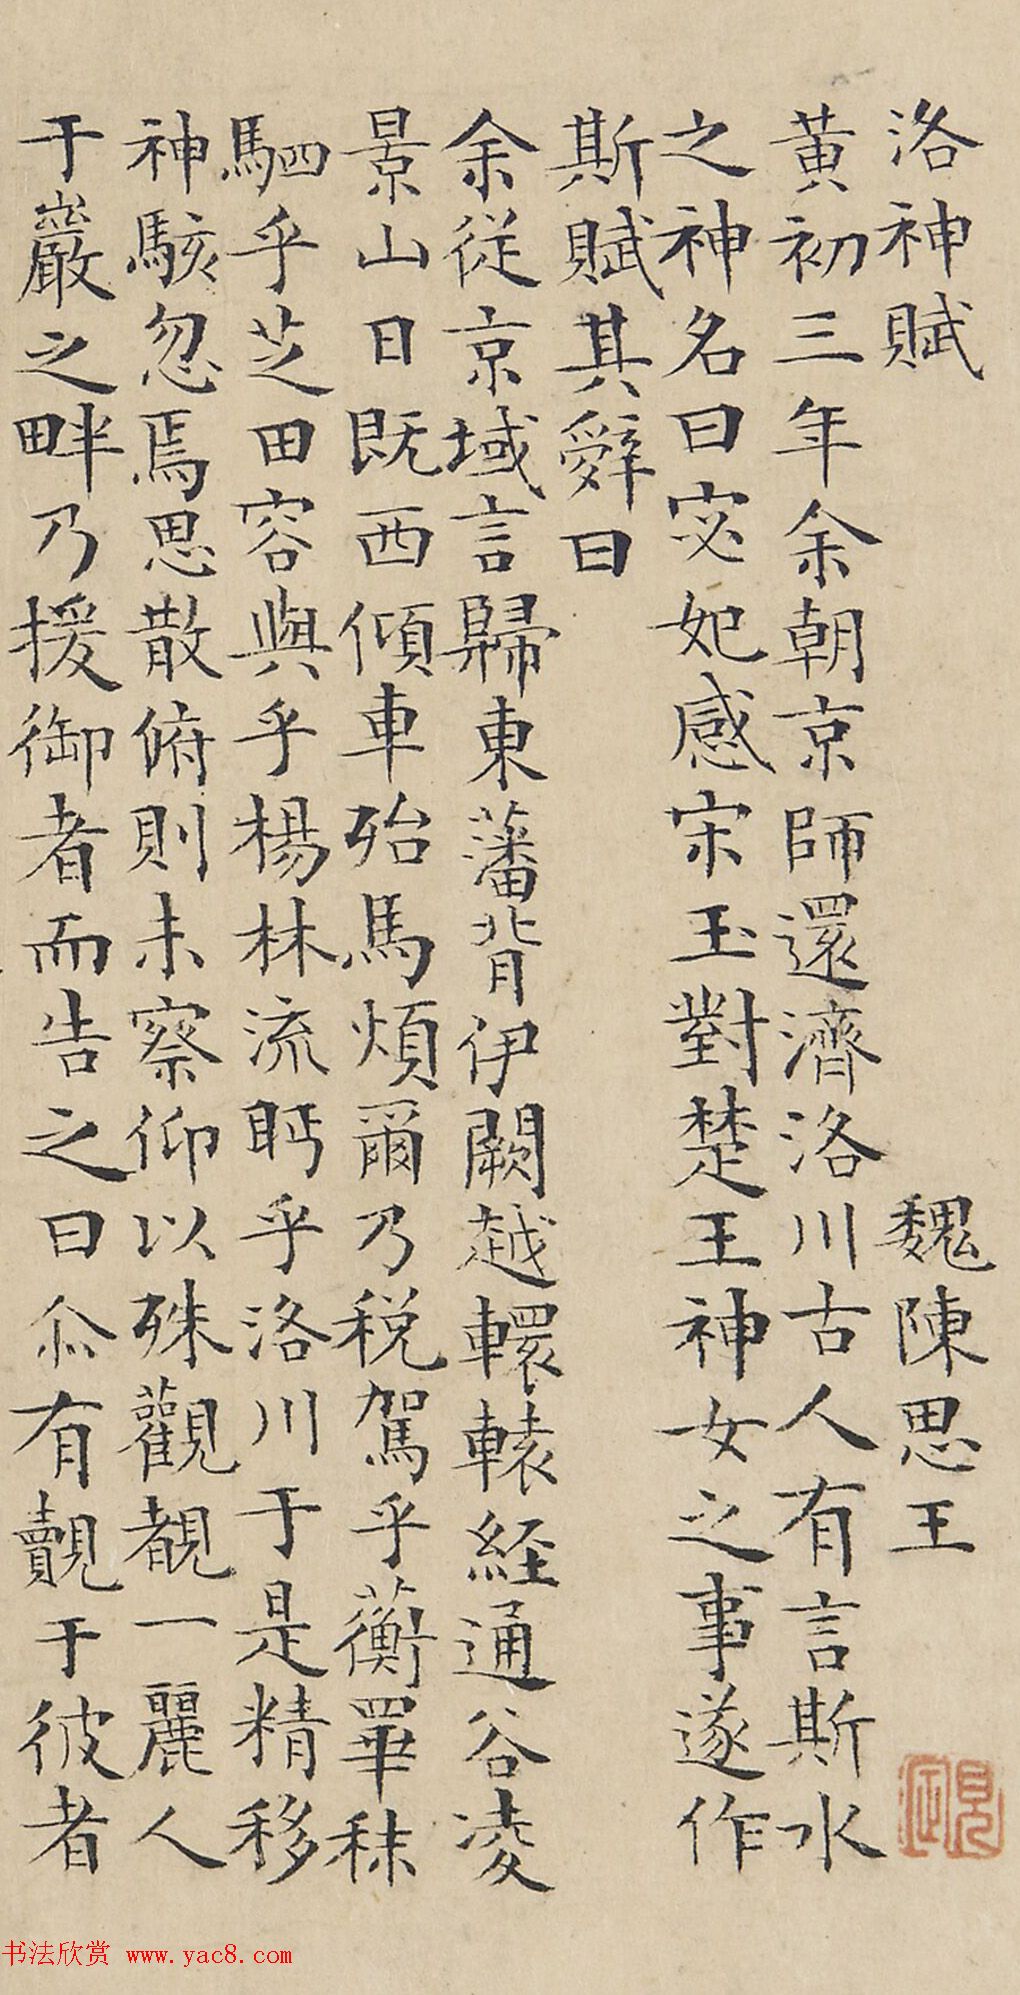 洛神賦 魏陳思王
黃初三年余朝京師還濟洛川古人有言斯水
之神名曰宓妃感宋玉對楚王神女之事遂作
斯賦其辭曰
余從京域言歸東藩背伊闕越轘轅経通谷凌
景山日既西傾車殆馬煩爾乃稅駕乎蘅罼秣
駟乎芝田容與乎楊林流眄乎洛川于是精移
神駭忽焉思散俯則未察仰以殊觀覩一麗人
于巖之畔乃援御者而告之曰尒有覿于彼者
书法欣赏 www.yac8.com